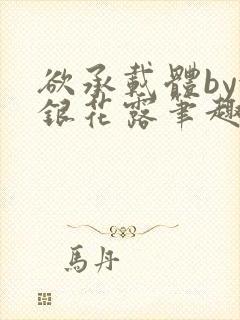 欲承載體by
銀花露筆趣
馬丹